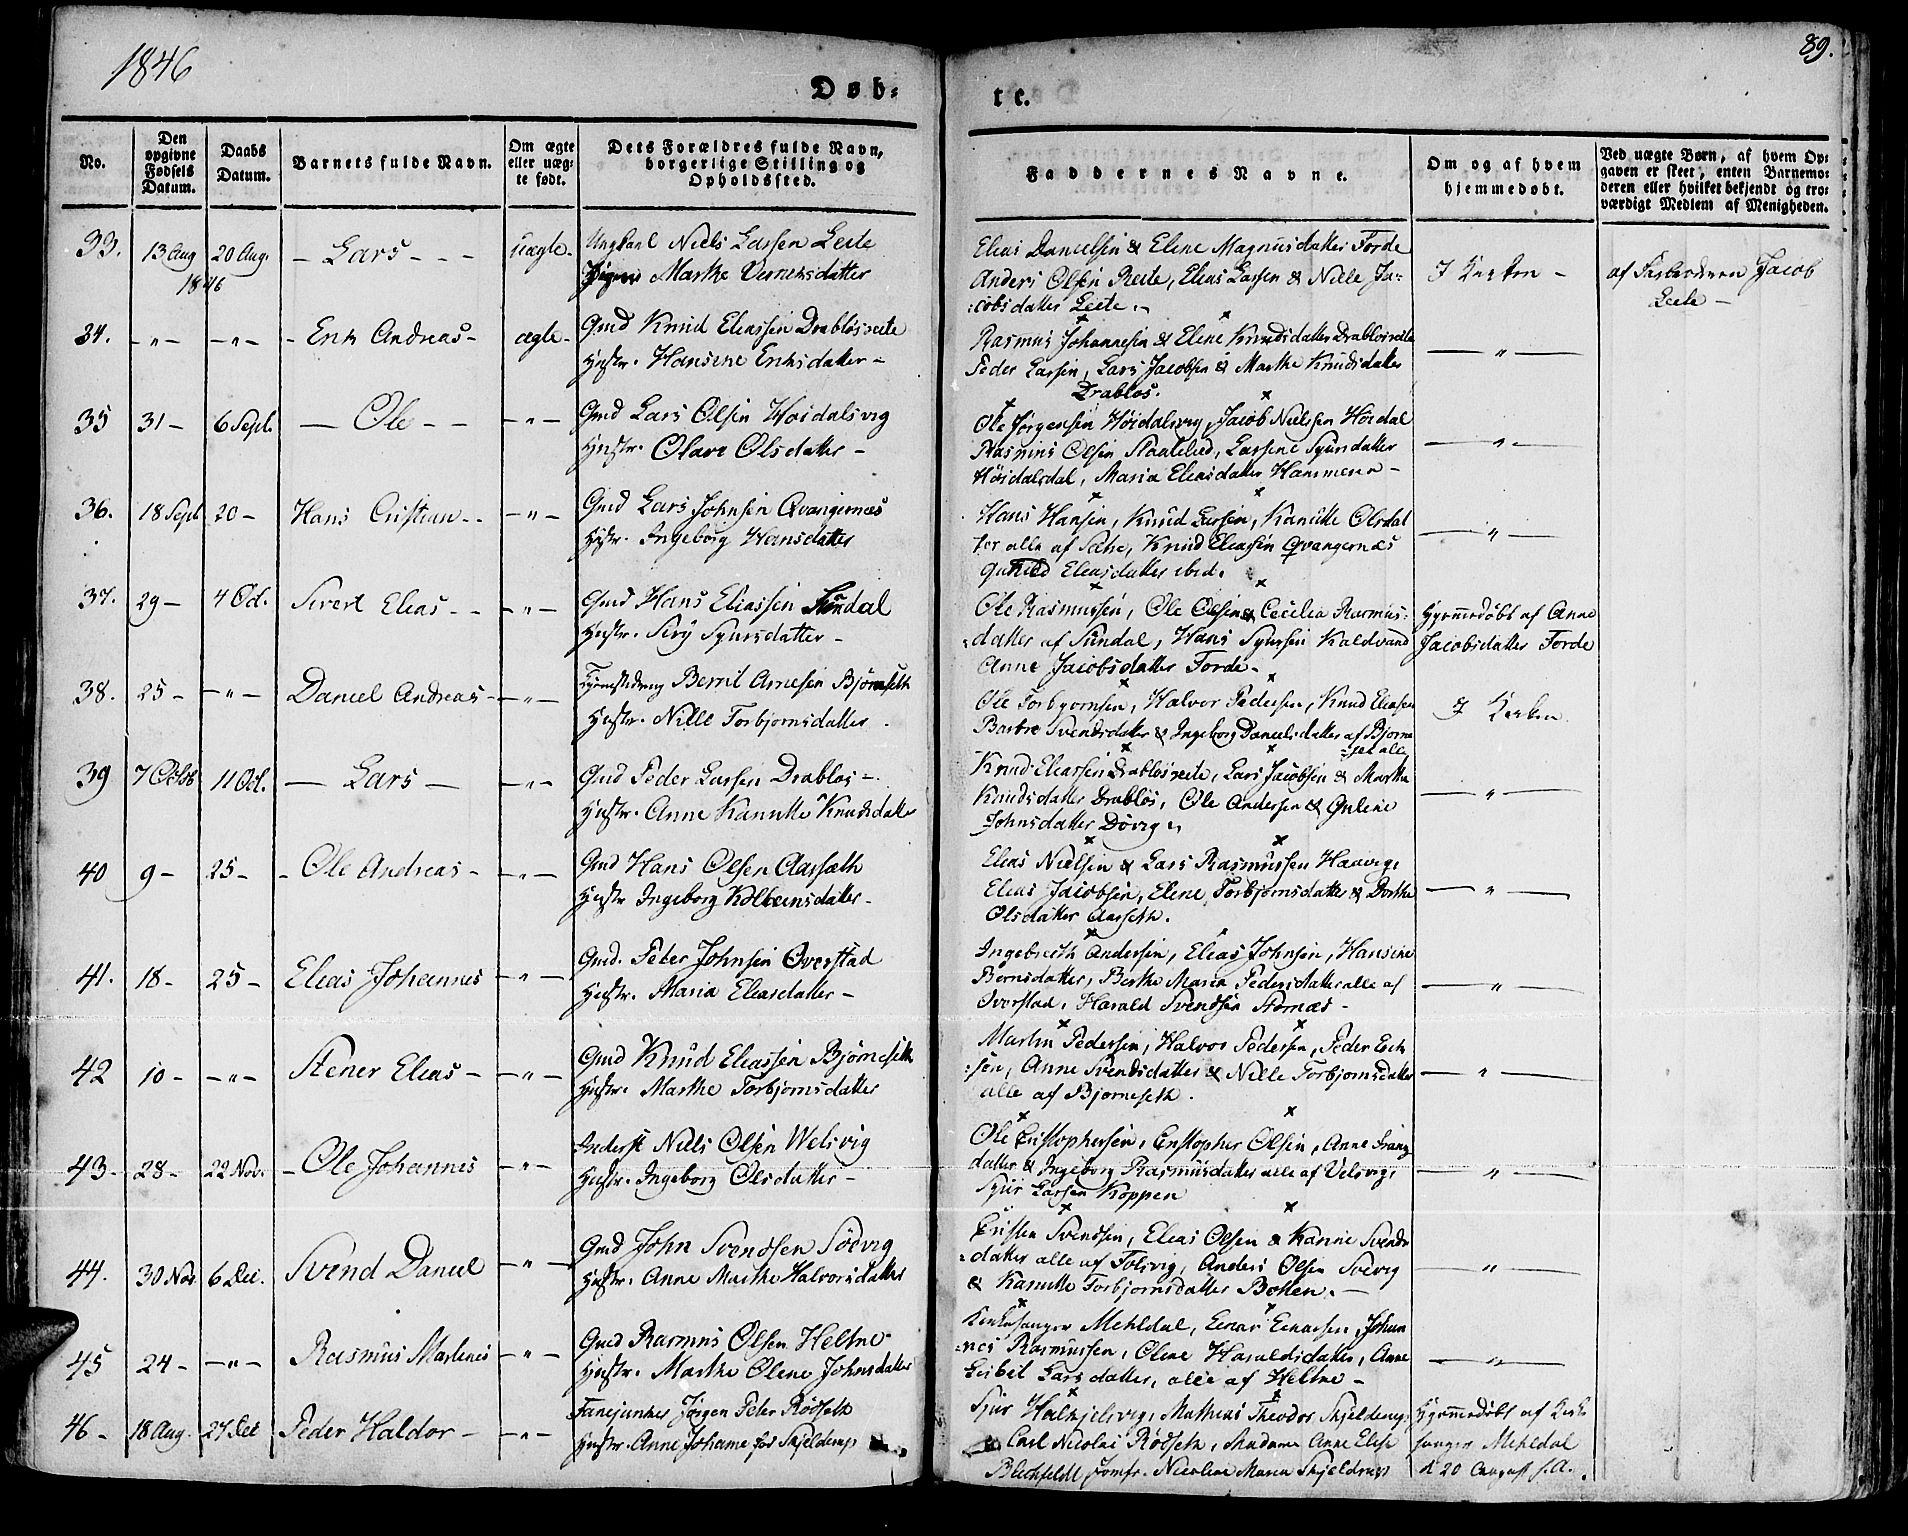 1846
89.
Døb=
te.
No.
Den opgivne Fødsels Datum.
Daabs Datum.
Barnets fulde Navn.
Om ægte eller uæg= te født.
Dets Forældres fulde Navn, borgerlige Stilling og Opholdssted.
Faddernes Navne.
Om og af hvem hjemmedøbt.
Ved uægte Børn, af hvem Op= gaven er skeet, enten Barnemo= deren eller hvilket bekjendt og tro= værdigt Medlem af Menigheden.
33. 13 Aug 20 Aug. - Lars - - - uægte. Ungkarl Niels Larsen Leite
1846
Marthe Vernersdatter
Elias Danielsen & Elene Magnusdatter Förde
Anders Olsen Reite, Elias Larsen & Nille Ja=
=cobsdatter Leite.
I Kirken -
af Jacob
Leite -
34. -"- -"- - Erik Andreas - ægte - Gmd Knud Eliassen Drabløsreite
Hustr. Hansine Eriksdatter -
Rasmus Johannesen & Elene Knudsdatter Drabløsreite
Peder Larsen, Lars Jacobsen & Marthe Knudsdatter
Drabløs.
-"-
35 31 - 6 Sept. - Ole - - -"- Gmd Lars Olsen Høidalsvig
Hustr. Olave Olsdatter -
Ole Jørgensen Höidalsvig, Jacob Nielsen Höidal
Rasmus Olsen Staalelied, Larsine Sjursdatter
Höidalsdal, Maria Eliasdatter Hammeren -
-"-
36. 18 Sept 20 - Hans Cristian - - -"- Gmd Lars Johnsen Qvangernæs
Hustr. Ingeborg Hansdatter
Hans Hansen, Knud Larsen, Kanutte Olsdat
ter alle af Sæhe, Knud Eliassen Qvangernæs
Gunild Eliasdatter ibid.
-"-
37. 29 - 4 Oct. Sivert Elias - - -"- Gmd Hans Eliassen Sundal
Hustr. Siry Sjursdatter -
Ole Rasmussen, Ole Olsen & Cecilia Rasmus=
=datter af Sundal, Hans Sjursen Kaldvand
Anne Jacobsdatter Förde -
Hjemmedøbt af Anne
Jacobsdatter Förde
38. 25 - -"- Daniel Andreas - -"- Bernt Arnesen Bjørneseth
Hustr. Nille Torbjørnsdatter.
Ole Torbjørnsen, Halvor Pedersen, Knud Eliassen
Barbro Svendsdatter & Ingeborg Danielsdatter af Bjørne
=set alle
I Kirken.
39 7 Octob 11 Oct. - Lars - -"- Gmd Peder Larsen Drabløs -
Hustr. Anne Kanutte Knudsdatter
Knud Eliassen Drabløsreite, Lars Jacobsen & Marthe
Knudsdatter Drabløs, Ole Andersen & Guline
Johnsdatter Døvig
-"-
40 9 - 25 - - Ole Andreas - -"- Gmd Hans Olsen Aarsæth
Hustr Ingeborg Kolbeinsdatter -
Elias Nielsen & Lars Rasmussen Haavig,
Elias Jacobsen, Elene Torbjørnsdatter & Dorthe
Olsdatter Aarseth.
-"-
41. 18 - 25 - Elias Johannes -"- Gmd. Peter Johnsen Overstad
Hustr. Maria Eliasdatter -
Ingebrecth Andersen, Elias Johnsen, Hansine
Bernsdatter, Berthe Maria Pedersdatter alle af
Overstad, Harald Svendsen Stornæs -
-"-
42 10 - -"- Stener Elias - -"- Gmd Knud Eliassen Bjørneseth
Hustr. Marthe Torbjørnsdatter
Martin Pedersen, Halvor Pedersen, Peder Erik
=sen, Anne Svendsdatter & Nille Torbjørnsdatter
alle af Bjørneseth.
-"-
43 - 28 - 22 Nov. - Ole Johannes -"- Inderst Niels Olsen Welsvig
Hustr. Ingeborg Olsdatter -
Ole Cristophersen, Cristopher Olsen, Anne
datter & Ingeborg Rasmusdatter alle af Velsvig,
Sjur Larsen Koppen
-"-
44. 30 Nov. 6 Dec. Svend Daniel -"- Gmd John Svendsen Södvig
Hustr. Anne Marthe Halvorsdatter
Cristen Svendsen, Elias Olsen & Karine Svends
=datter alle af Folsvig, Anders Olsen Solvig
& Kanutte Torbjørnsdatter Botten. -
-"-
45 24 - -"- Rasmus Martenus -"- Gmd Rasmus Olsen Heltne
Hustr. Marthe Oline Johnsdatter
Kirkesanger Mehldal, Einar Einarsen, Johan
=nes Rasmussen, Oline Haraldsdatter, Anne
Lisbet Larsdatter, alle af Heltne -
-"-
46 - 18 Aug. 27 Dec Peder Haldor - -"- Fanejunker Jørgen Peter Rödseth
Hustr. Anne Johanne fød Skjelderup
Sjur Halkjelsvig, Mathias Theodor Skjelderup,
Carl Nicolai Rödseth, Madame Anne Elise
Blechfeldt Jomfr. Nicoline Maria Skjeldrup
Hjemmedøbt af Kirke
sanger Mehldal
d 20 August s. A.